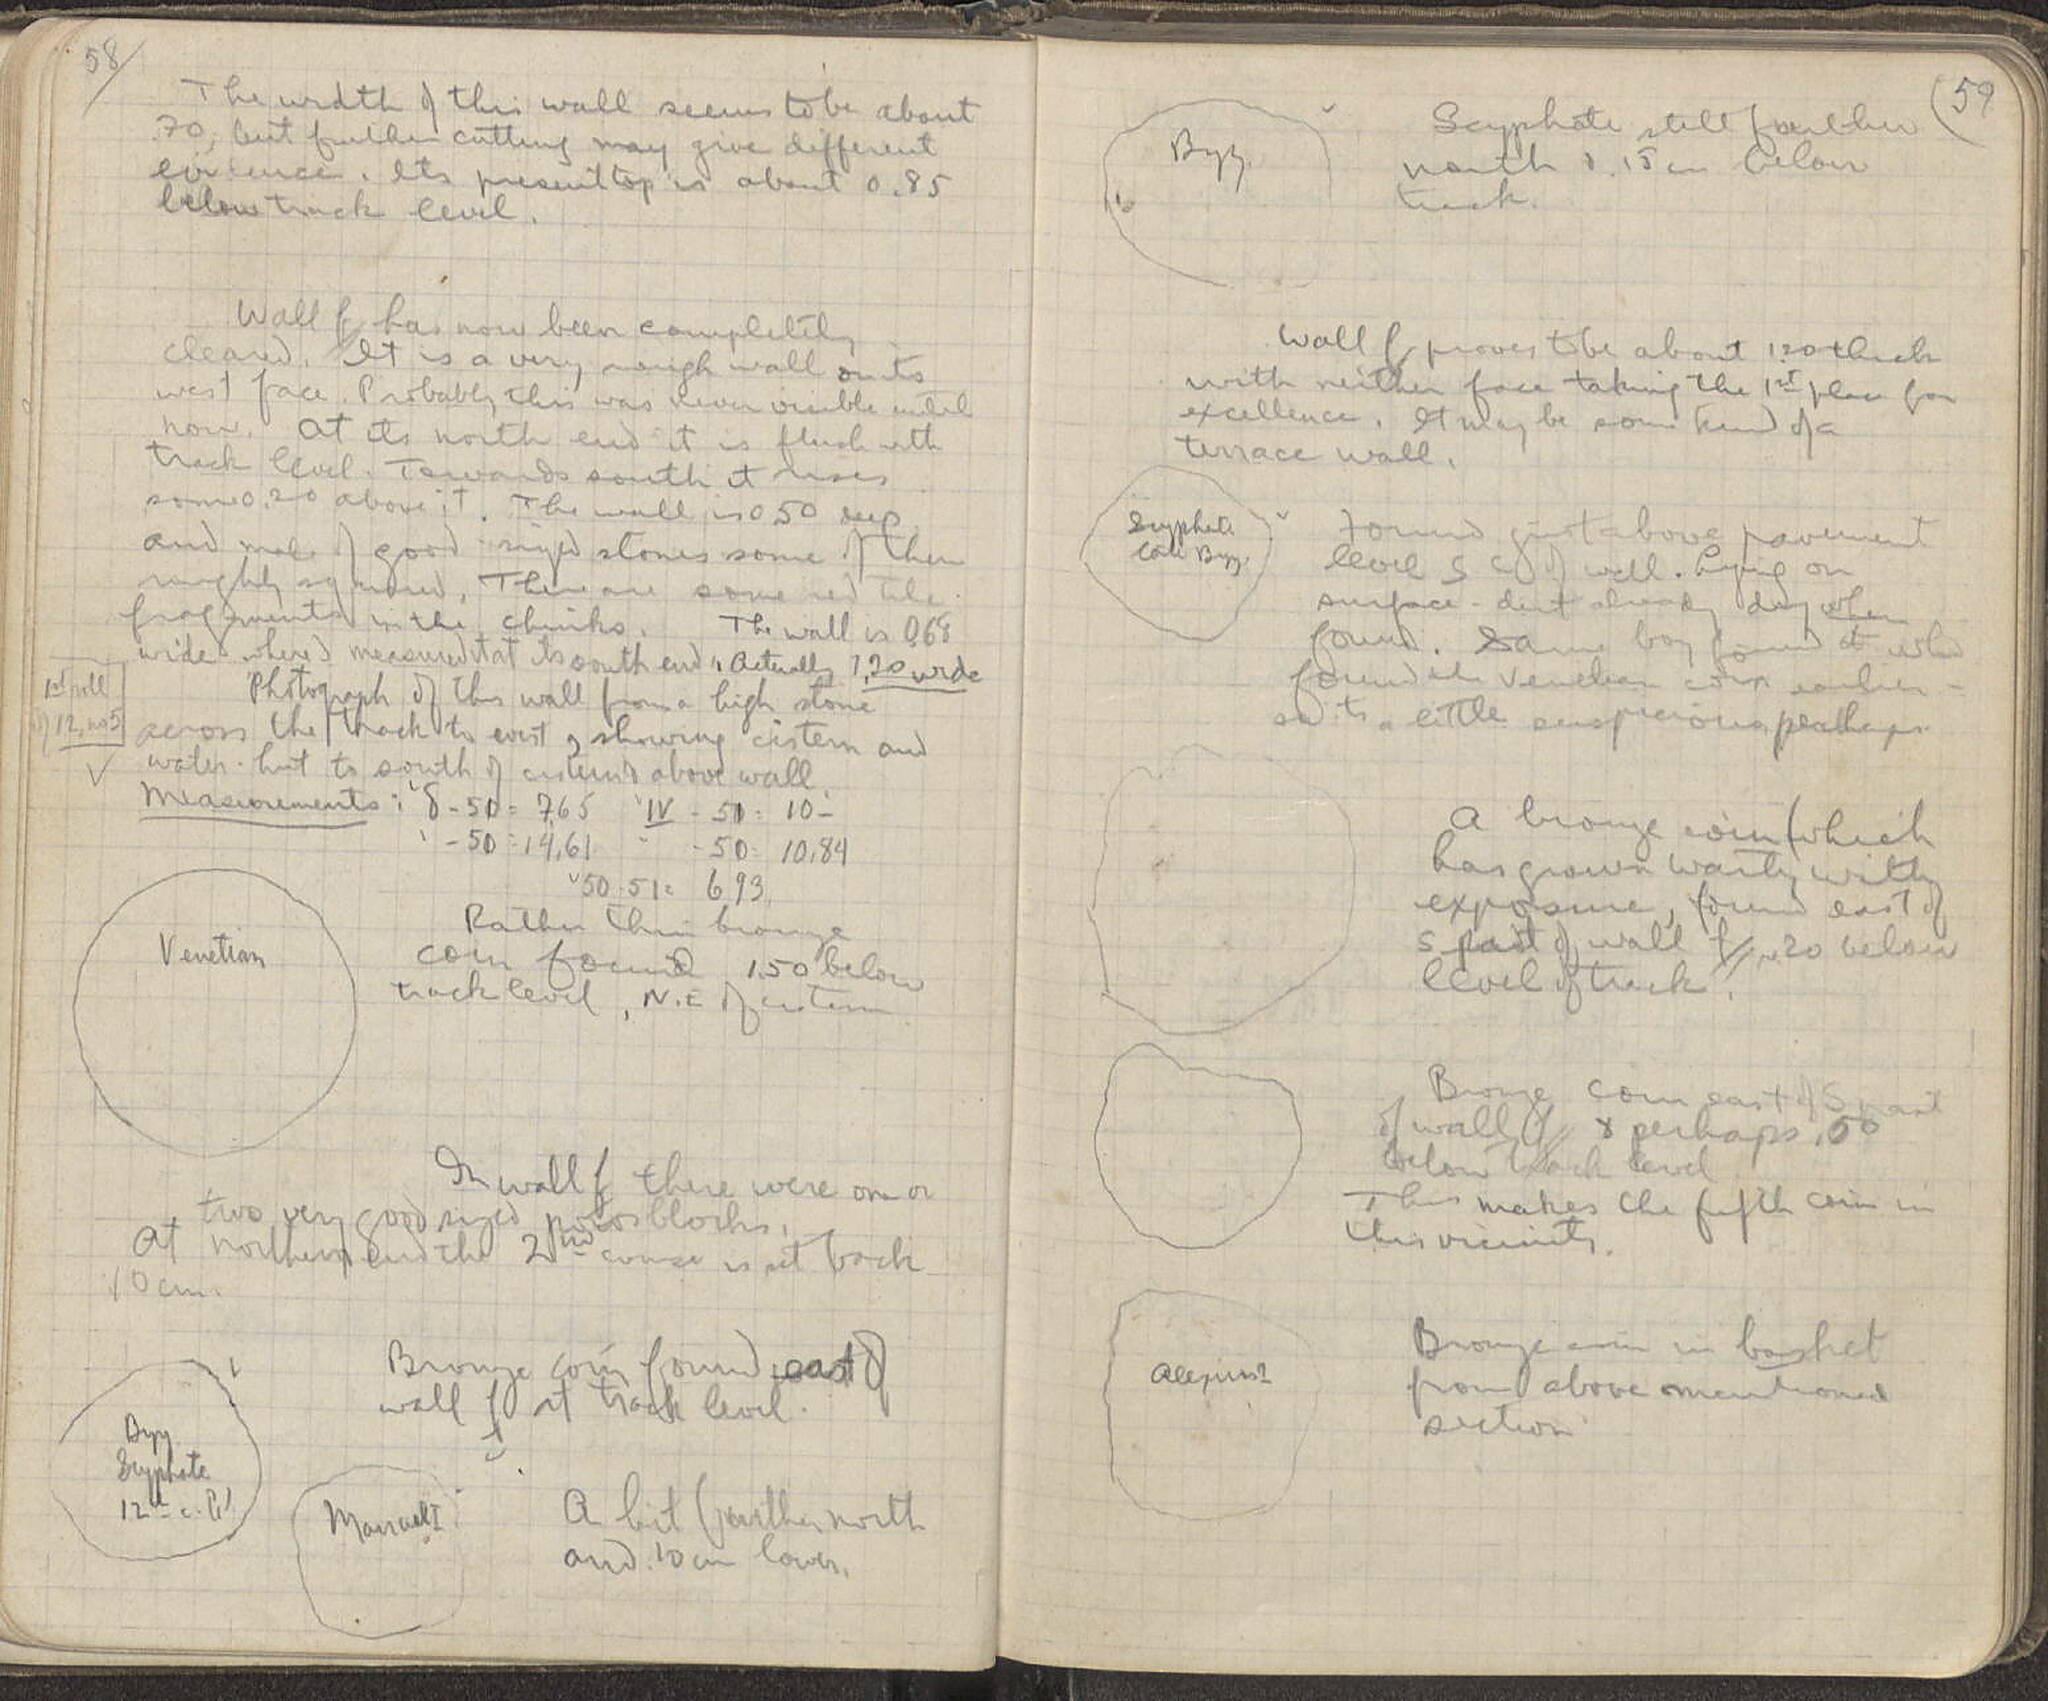 58
The width of this wall seems to be about
.70, but further cutting may give different
evidence. Its present top is about 0.85
below track level.
Wall f has now been completely
cleared. It is a very rough wall on its
west face. Probably this was never visible until
now. At its north end it is flush with
track level. Towards south it rises
some 0.20 above it. The wall is 0.50 deep
and made of good-sized stones some of them
roughly squared. There are some red tile
fragments in the chinks. The wall is 0.68
wide where I measured it at its south end. Actually 1.20 wide
1st roll
of 12, no 5
Photograph of this wall from a high stone
across the track to east, showing cistern and
water-hut to south of cistern & above wall.
Measurements: δ - 51 = 7.65 IV - 51 = 10-
- 50 = 14.61 " - 50 = 10.84
50-51 = 6.93
Venetian
Rather thin bronze
coin found 1.50 below
track level, N.E of cistern
In wall f there were one or
two very good sized poros blocks.
At northern end the 2nd course is set back
10 cm.
Byz
Scyphate
12th c.
Bronze coin found east of
wall f at track level.
Manuel I
A bit further north
and .10 cm lower.
59
Byz.
Scyphate still further
north & .15 cm below
track.
Wall f proves to be about 1.20 thick
with neither face taking the 1st place for
excellence. It may be some kind of a
terrace wall.
Scyphate
Late Byz.
Found just above pavement
level S of well. Lying on
surface - dirt already dry when
found. Same boy found it who
found the Venetian coin earlier -
so its a little suspicious, perhaps
A bronze coin (which
has grown warty with
exposure, found east of
S part of wall f, .20 below
level of track.
Bronze coin east of S part
of wall f & perhaps .50
below track level
This makes the fifth coin in
this vicinity.
Alexius?
Bronze coin in basket
from above mentioned
section